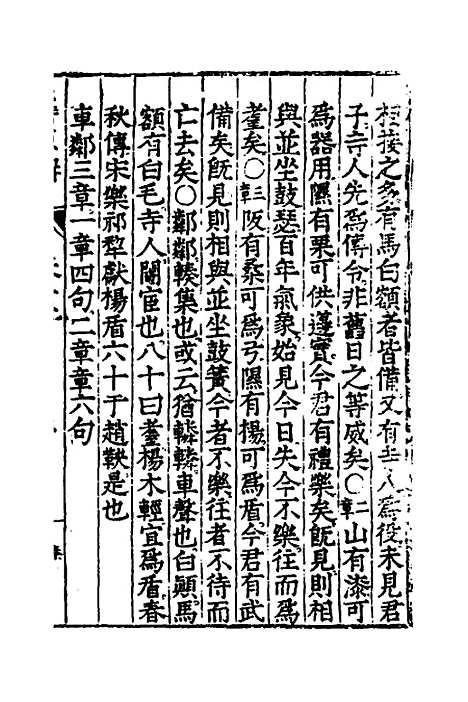 相接之多有馬白額者皆備又有寺人為役未見君
子寺人先為傳令非舊日之等威矣〇二章山有漆可
為器用隰有栗可供籩實今君有禮樂矣旣見則相
與並坐鼓瑟百年氣象始見今日失今不樂往而為
耋矣〇三章阪有桑可為弓隰有楊可為盾今君有武
備矣旣見則相與並坐鼓簧今者不樂往者不待而
亡去矣〇鄰鄰輳集也或云猶轔轔車聲也白顛馬
額有白毛寺人閹宦也八十曰耋楊木輕宜為盾春
秋傳宋樂祁犁獻楊盾六十于趙鞅是也
車鄰三章一章四句二章章六句